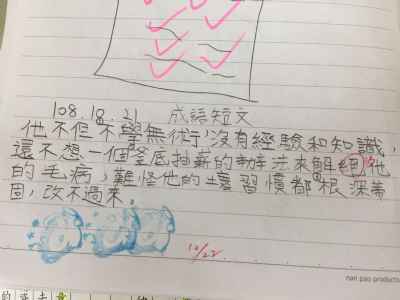 108.10.21 成語短文
他不但不學無術,沒有經驗和知識,
還不想一個釜底抽薪的辦法來解絕他
的毛病,難怪他的壞習慣都根深蒂
固,改不過來。
10/22
nan pao product